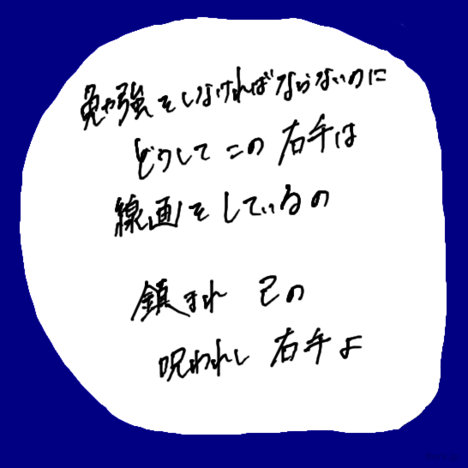 勉強をしなければならないのに
どうしてこの右手は
線画をしているの
鎮まれ 己の
呪われし 右手よ